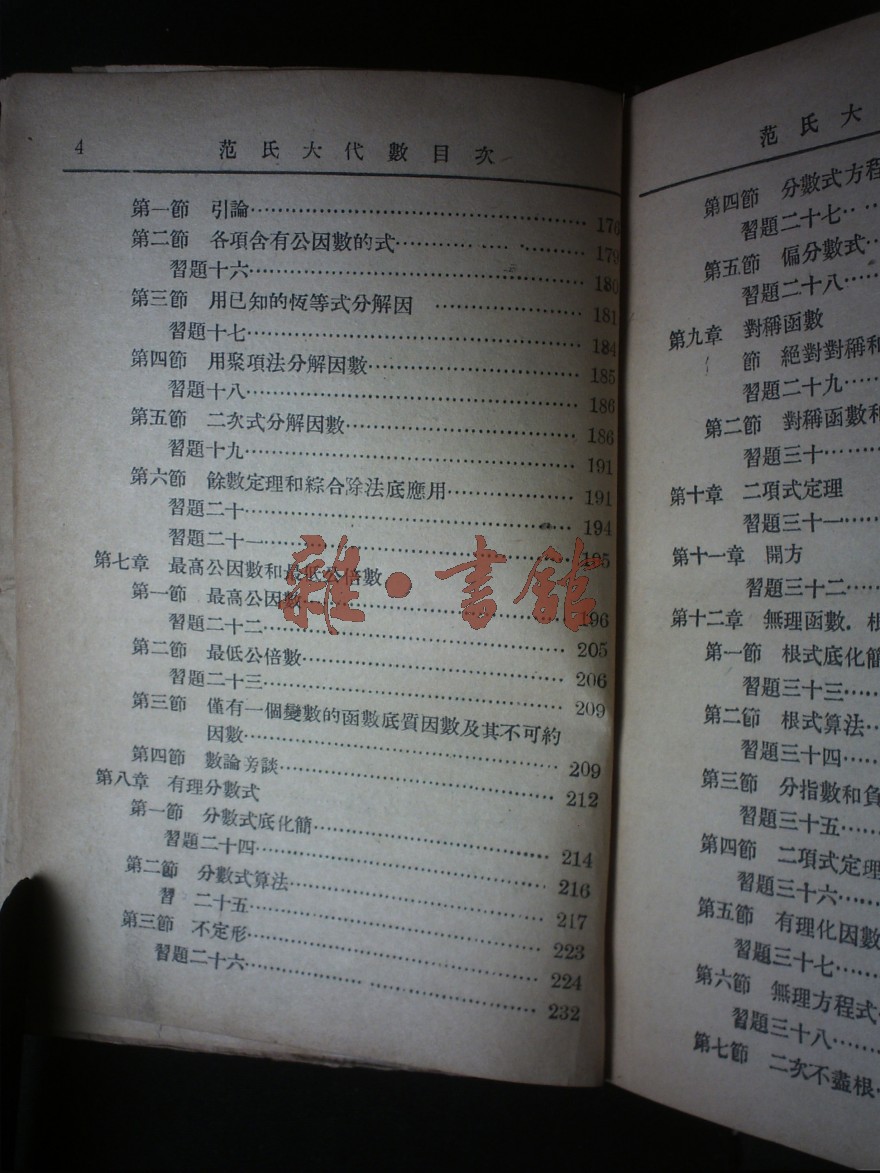 4 范氏大代數目次
第一節 引論 176
第二節 各項含有公因數的式 179
習題十六 180
第三節 用已知的恆等式分解因 181
習題十七 184
第四節 用聚項法分解因數 185
習題十八 186
第五節 二次式分解因數 186
習題十九 191
第六節 餘數定理和綜合除法底應用 191
習題二十 194
習題二十一 195
第七章 最高公因數和最低公倍數
第一節 最高公因數 196
習題二十二 205
第二節 最低公倍數 206
習題二十三 209
第三節 僅有一個變數的函數底質因數及其不可約
因數 209
第四節 數論旁談 212
第八章 有理分數式
第一節 分數式底化簡 214
習題二十四 216
第二節 分數式算法 217
習 二十五 223
第三節 不定形 224
習題二十六 232
雜·書館
范氏大
第四節 分數式方程
習題二十七
第五節 偏分數式
習題二十八
第九章 對稱函數
節 絕對對稱和
習題二十九
第二節 對稱函數和
習題三十
第十章 二項式定理
習題三十一
第十一章 開方
習題三十二
第十二章 無理函數．根
第一節 根式底化簡
習題三十三
第二節 根式算法
習題三十四
第三節 分指數和負
習題三十五
第四節 二項式定理
習題三十六
第五節 有理化因數
習題三十七
第六節 無理方程式
習題三十八
第七節 二次不盡根